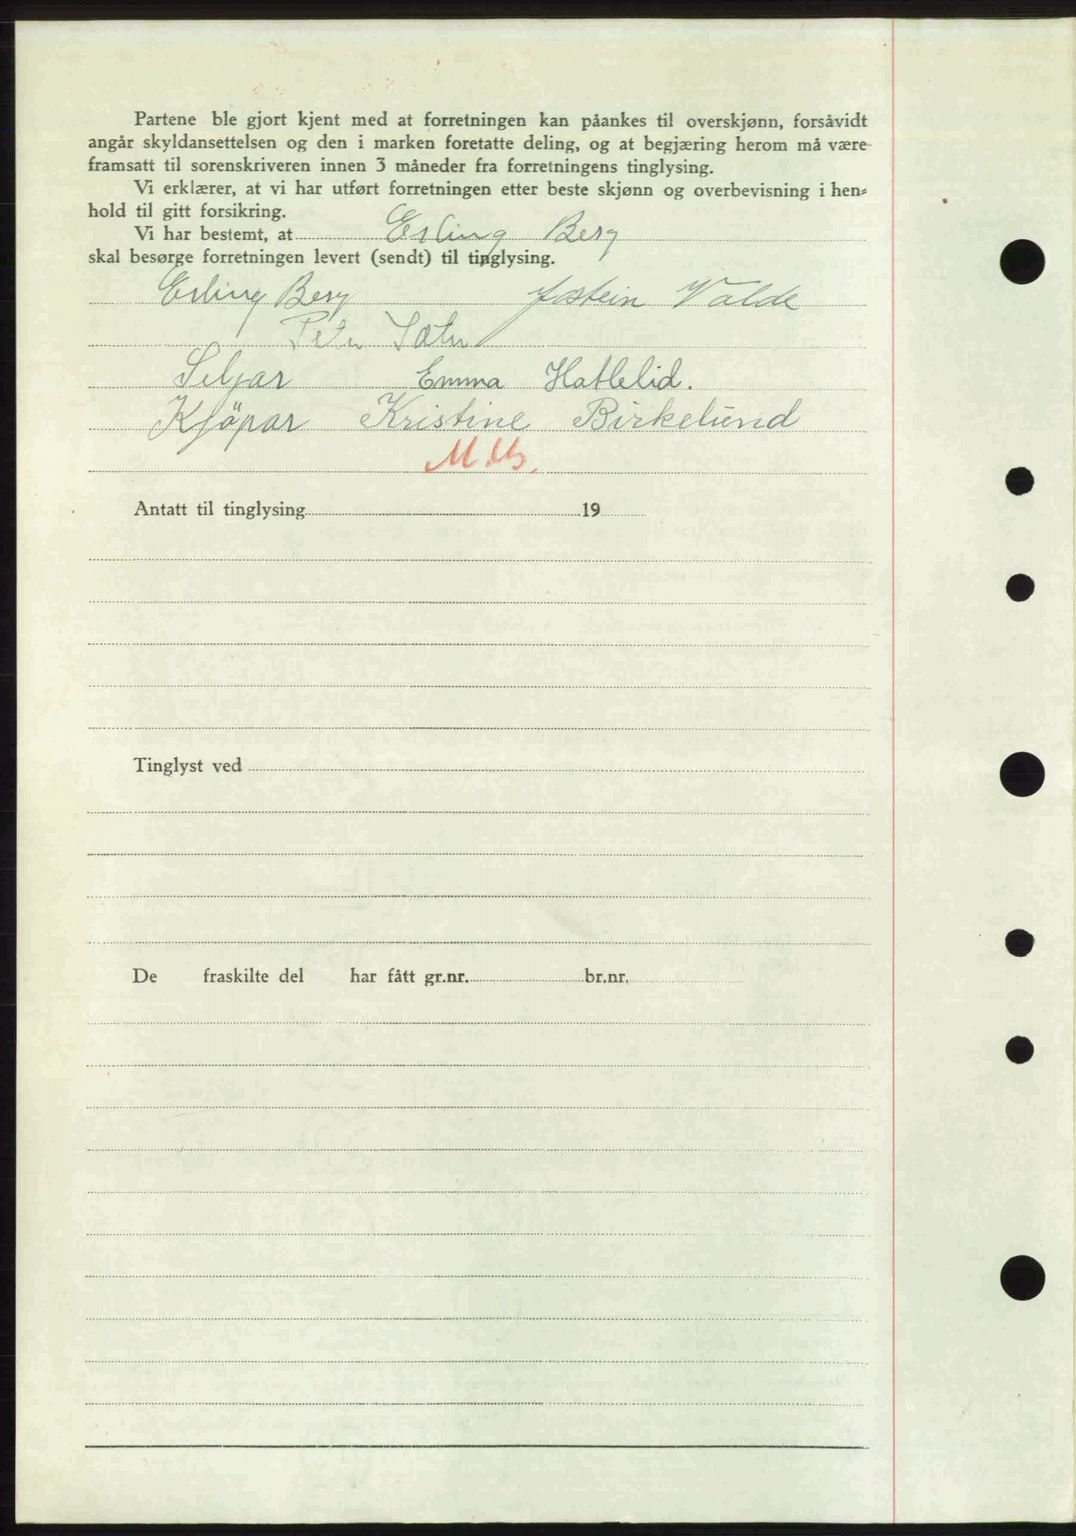 Partene ble gjort kjent med at forretningen kan påankes til overskjønn, forsåvidt
angår skyldansettelsen og den i marken foretatte deling, og at begjæring herom må være
framsatt til sorenskriveren innen 3 måneder fra forretningens tinglysing.
Vi erklærer, at vi har utført forretningen etter beste skjønn og overbevisning i hen-
hold til gitt forsikring.
Vi har bestemt, at Erling Berg
skal besørge forretningen levert (sendt) til tinglysing.
Erling Berg Jostein Valde
Peter
Seljar Emma Hatlelid.
Kjöpar Kristine Birkelund
Antatt til tinglysing 19
Tinglyst ved
De fraskilte del har fått gr.nr. br.nr.